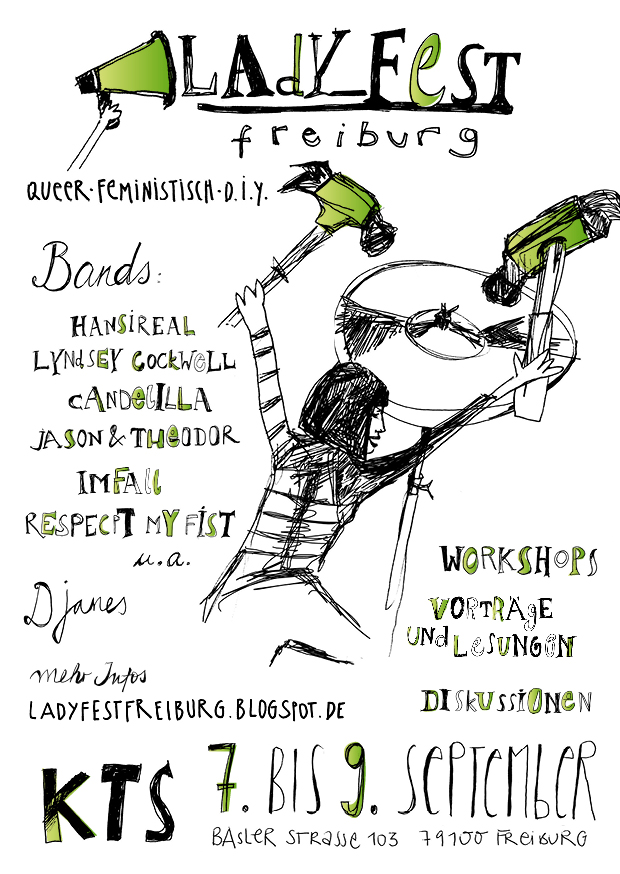 LADYFEST
freiburg
QUEER·FEMINISTISCH·D.I.Y.
Bands:
HANSIREAL
LYNDSEY COCKWELL
CANDELILLA
JASON & THEODOR
IMFALL
RESPECPT MY FIST
u.a.
Djanes
mehr Infos
LADYFESTFREIBURG.BLOGSPOT.DE
WORKSHOPS
VORTRÄGE
UND LESUNGEN
DISKUSSIONEN
KTS
7. BIS 9. SEPTEMBER
BASLER STRASSE 103 79100 FREIBURG